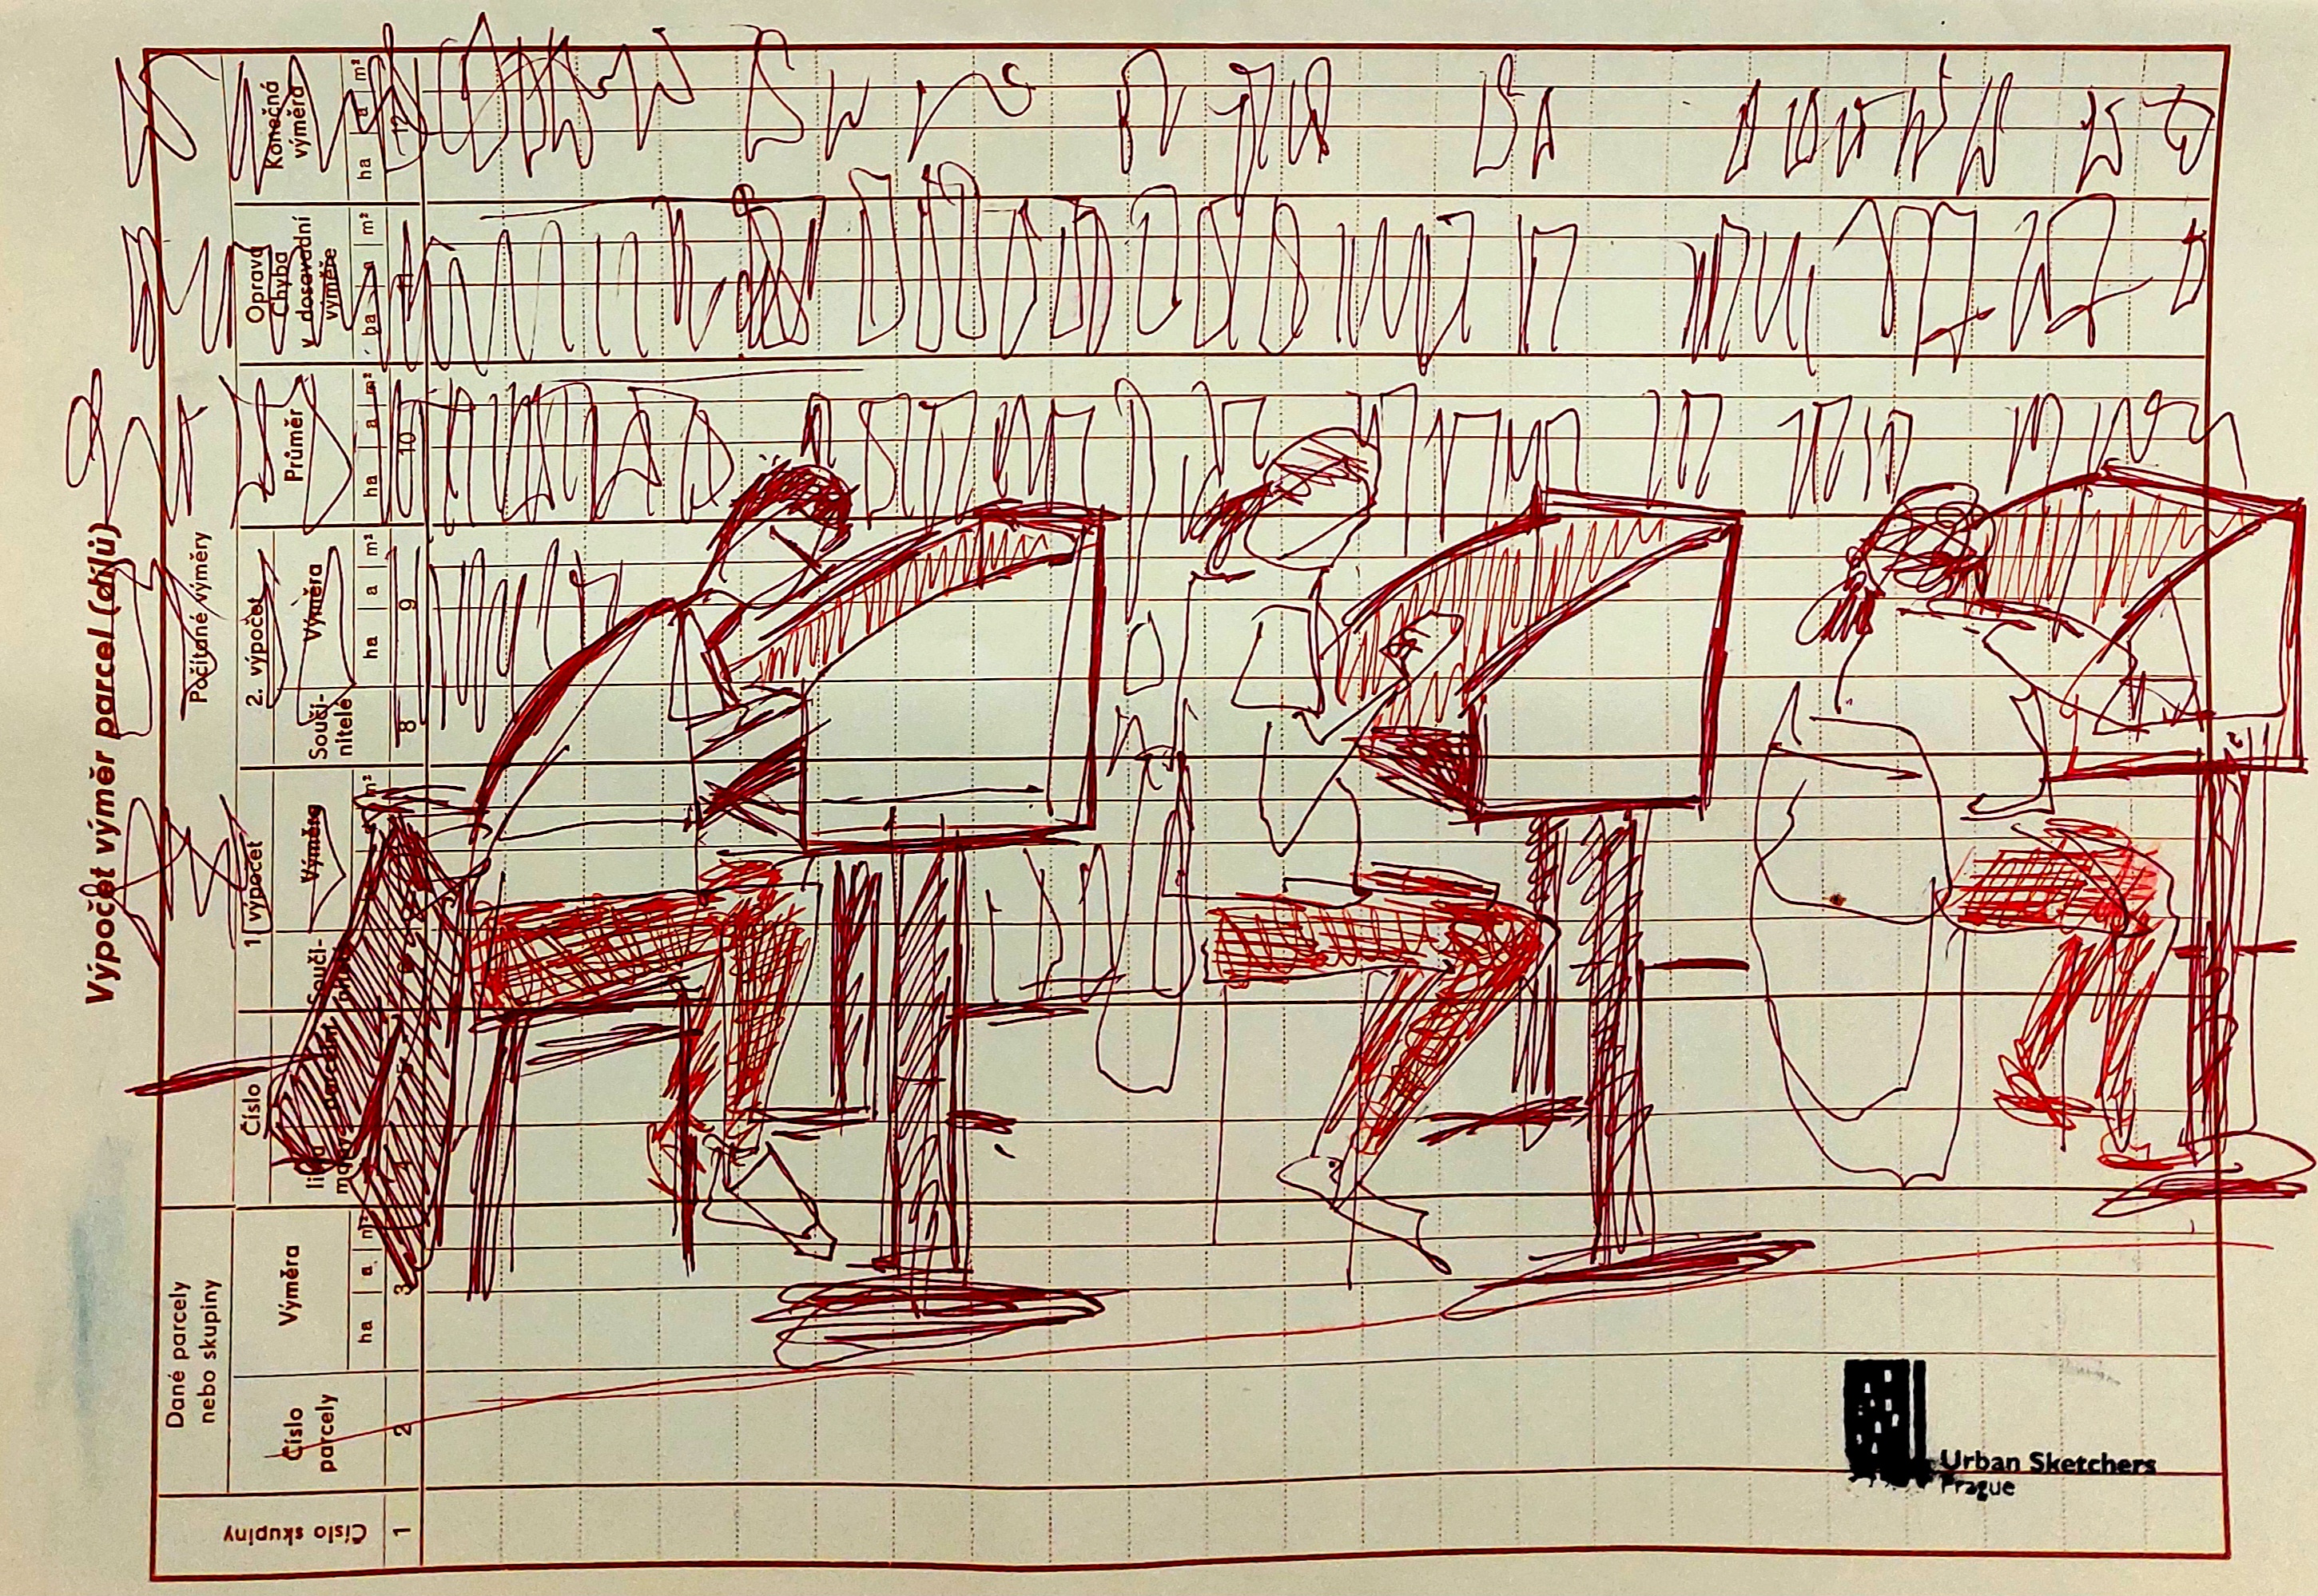 Výpočet výměr parcel (dílů)
Dané parcely
nebo skupiny
Počítané výměry
Číslo skupiny
Číslo
parcely
Výměra
ha a m²
Číslo
1 výpočet
Výměra
m²
2. výpočet
Souči-
nitelé
Výměra
ha a m²
Průměr
ha a m²
Oprava
Chyba
v dosavadní
výměře
ha a m²
Konečná
výměra
ha a m²
1 2 3 8 9 10 11 12
Urban Sketchers
Prague